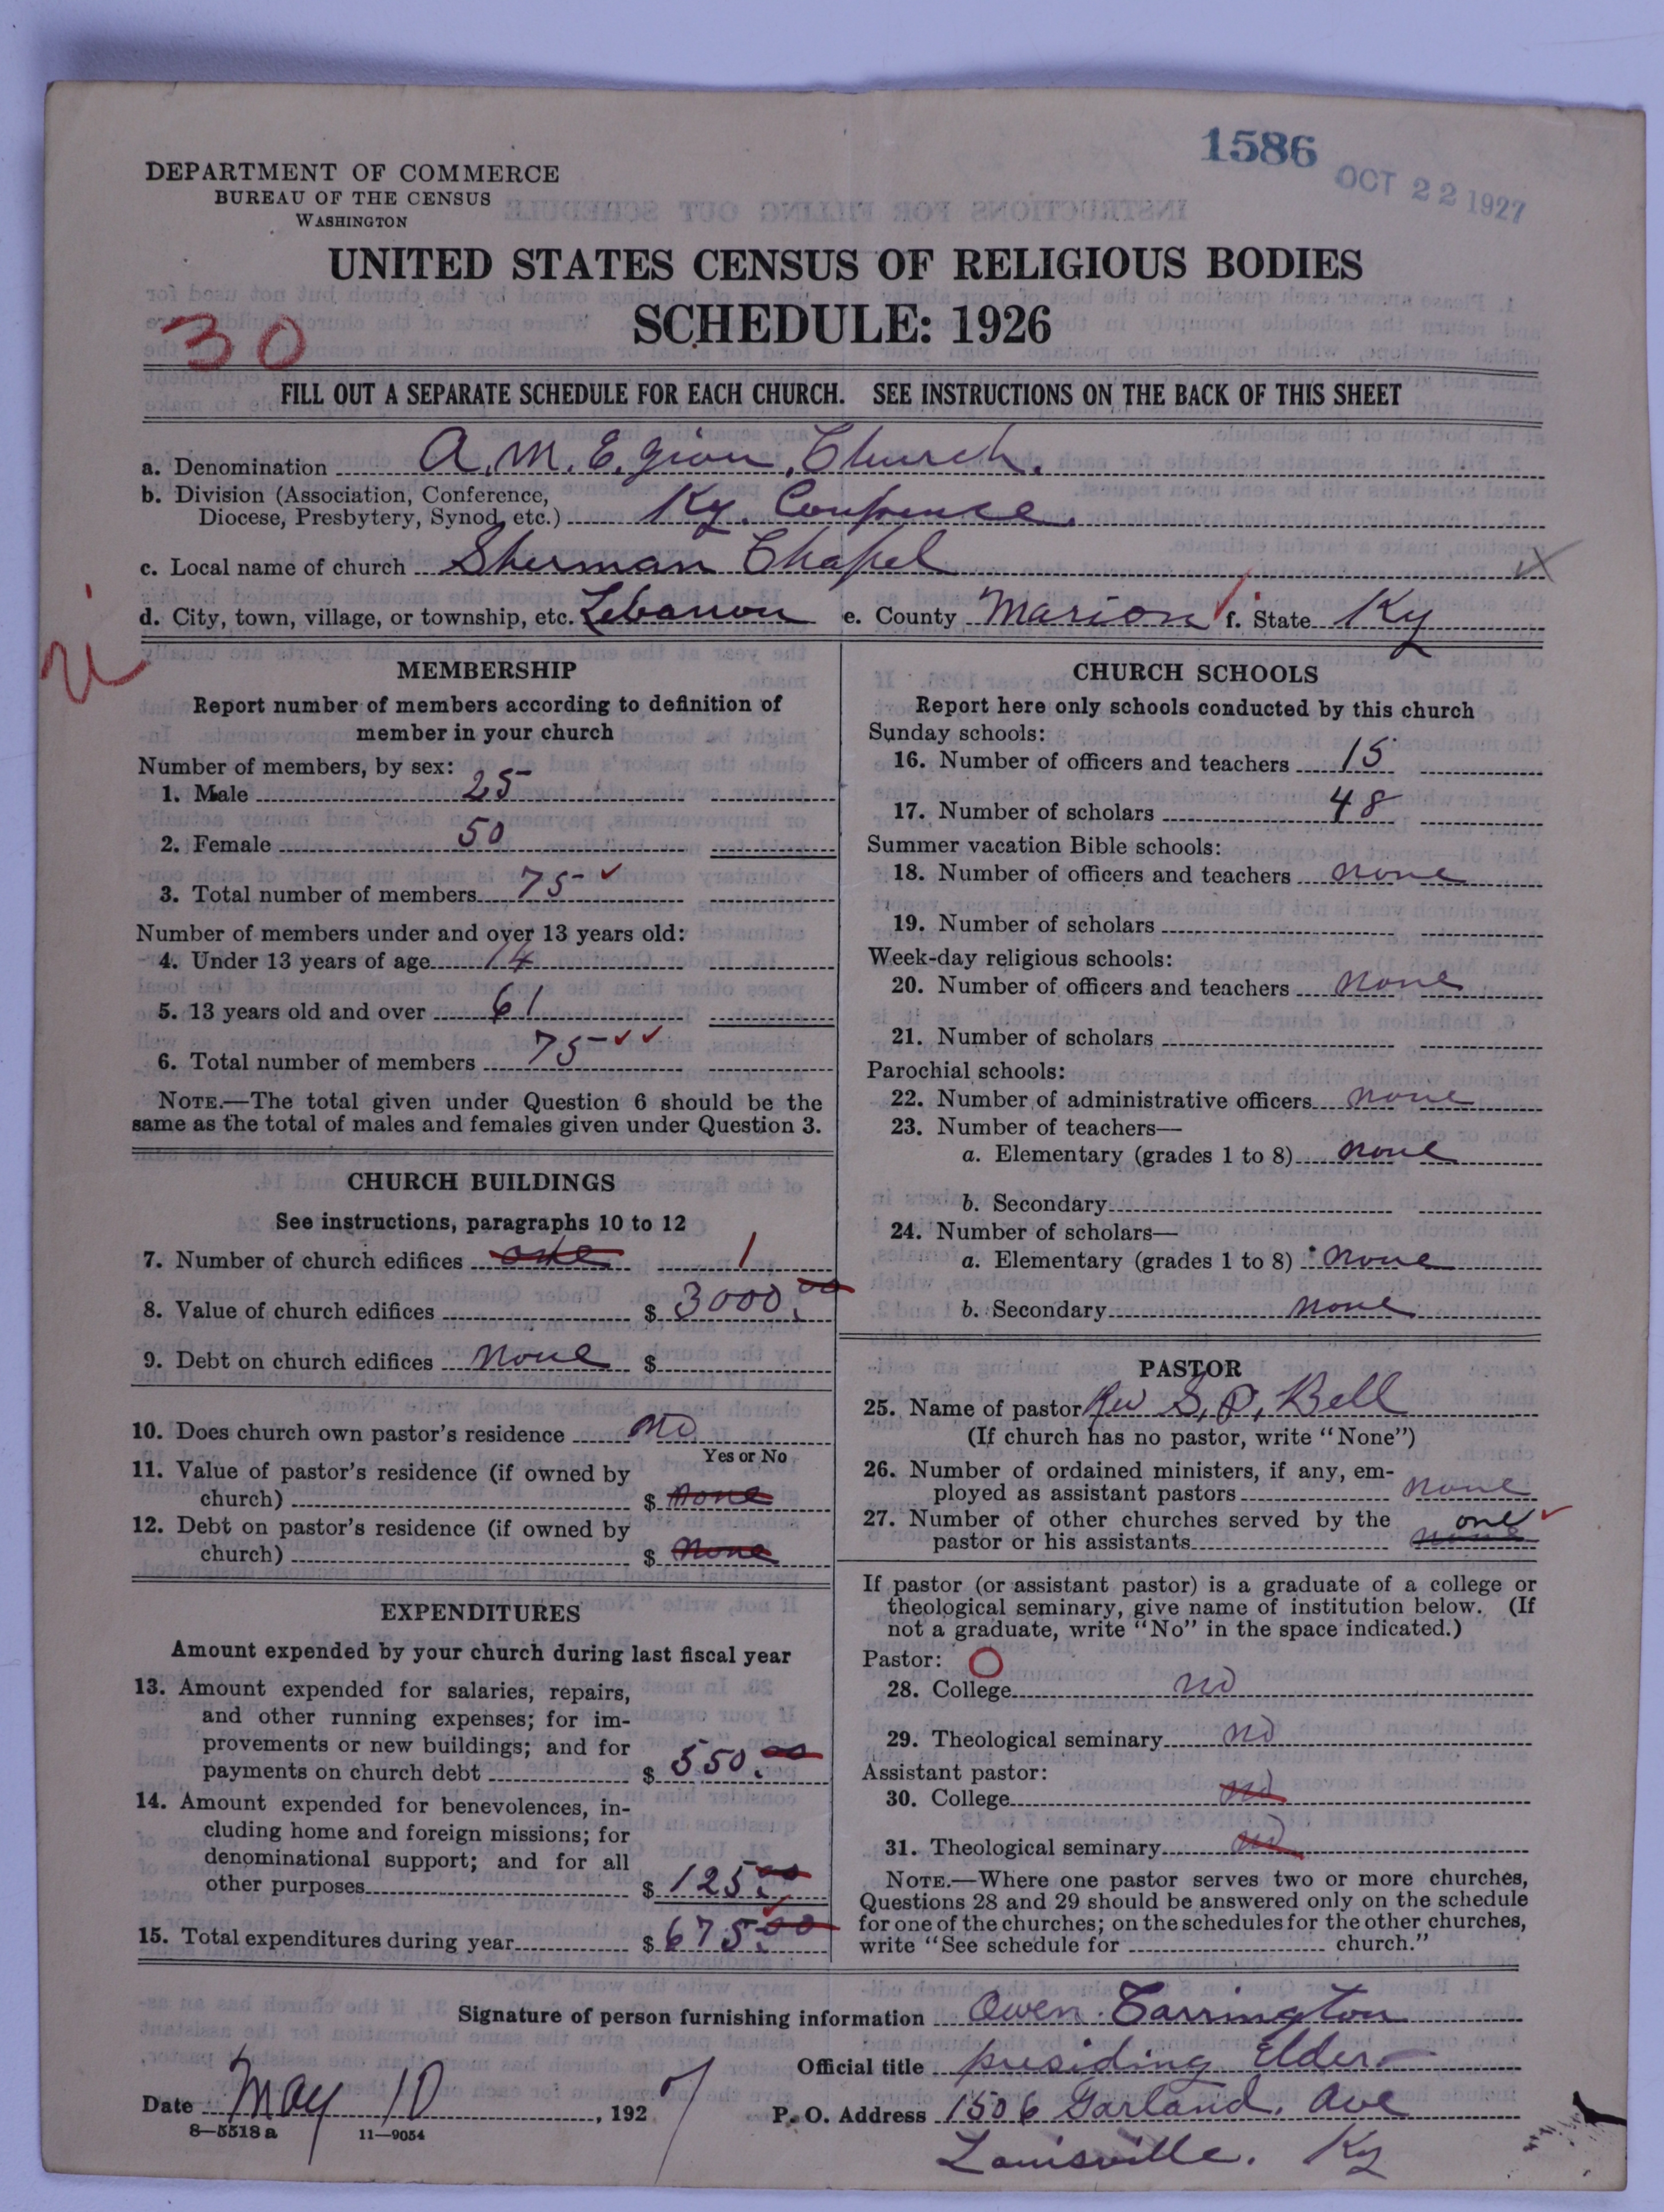 1586
OCT 22 1927
DEPARTMENT OF COMMERCE
BUREAU OF THE CENSUS
WASHINGTON
UNITED STATES CENSUS OF RELIGIOUS BODIES
SCHEDULE: 1926
30
FILL OUT A SEPARATE SCHEDULE FOR EACH CHURCH. SEE INSTRUCTIONS ON THE BACK OF THIS SHEET
a. Denomination A. M. E. Zion, Church.
b. Division (Association, Conference,
Diocese, Presbytery, Synod, etc.) Ky. Confrence.
c. Local name of church Sherman Chapel
d. City, town, village, or township, etc. Lebanon e. County Marion f. State Ky
MEMBERSHIP
Report number of members according to definition of
member in your church
Number of members, by sex:
1. Male 25
2. Female 50
3. Total number of members 75
Number of members under and over 13 years old:
4. Under 13 years of age 14
5. 13 years old and over 61
6. Total number of members 75
NOTE.—The total given under Question 6 should be the
same as the total of males and females given under Question 3.
CHURCH BUILDINGS
See instructions, paragraphs 10 to 12
7. Number of church edifices one 1
8. Value of church edifices $ 3000.00
9. Debt on church edifices none $
10. Does church own pastor's residence no
Yes or No
11. Value of pastor's residence (if owned by
church) $ none
12. Debt on pastor's residence (if owned by
church) $ none
EXPENDITURES
Amount expended by your church during last fiscal year
13. Amount expended for salaries, repairs,
and other running expenses; for im-
provements or new buildings; and for
payments on church debt $ 550.00
14. Amount expended for benevolences, in-
cluding home and foreign missions; for
denominational support; and for all
other purposes $ 125.00
15. Total expenditures during year $ 675.00
CHURCH SCHOOLS
Report here only schools conducted by this church
Sunday schools:
16. Number of officers and teachers 15
17. Number of scholars 48
Summer vacation Bible schools:
18. Number of officers and teachers none
19. Number of scholars
Week-day religious schools:
20. Number of officers and teachers none
21. Number of scholars
Parochial schools:
22. Number of administrative officers none
23. Number of teachers—
a. Elementary (grades 1 to 8) none
b. Secondary
24. Number of scholars—
a. Elementary (grades 1 to 8) none
b. Secondary none
PASTOR
25. Name of pastor Rev S. P. Bell
(If church has no pastor, write "None")
26. Number of ordained ministers, if any, em-
ployed as assistant pastors none
27. Number of other churches served by the one
pastor or his assistants none
If pastor (or assistant pastor) is a graduate of a college or
theological seminary, give name of institution below. (If
not a graduate, write "No" in the space indicated.)
Pastor: O
28. College no
29. Theological seminary no
Assistant pastor:
30. College no
31. Theological seminary no
NOTE.—Where one pastor serves two or more churches,
Questions 28 and 29 should be answered only on the schedule
for one of the churches; on the schedules for the other churches,
write "See schedule for church."
Signature of person furnishing information Owen Carrington
Official title presiding Elder
Date May 10, 1927
P. O. Address 1506 Garland. Ave
Louisville. Ky
8—5518a 11—9054